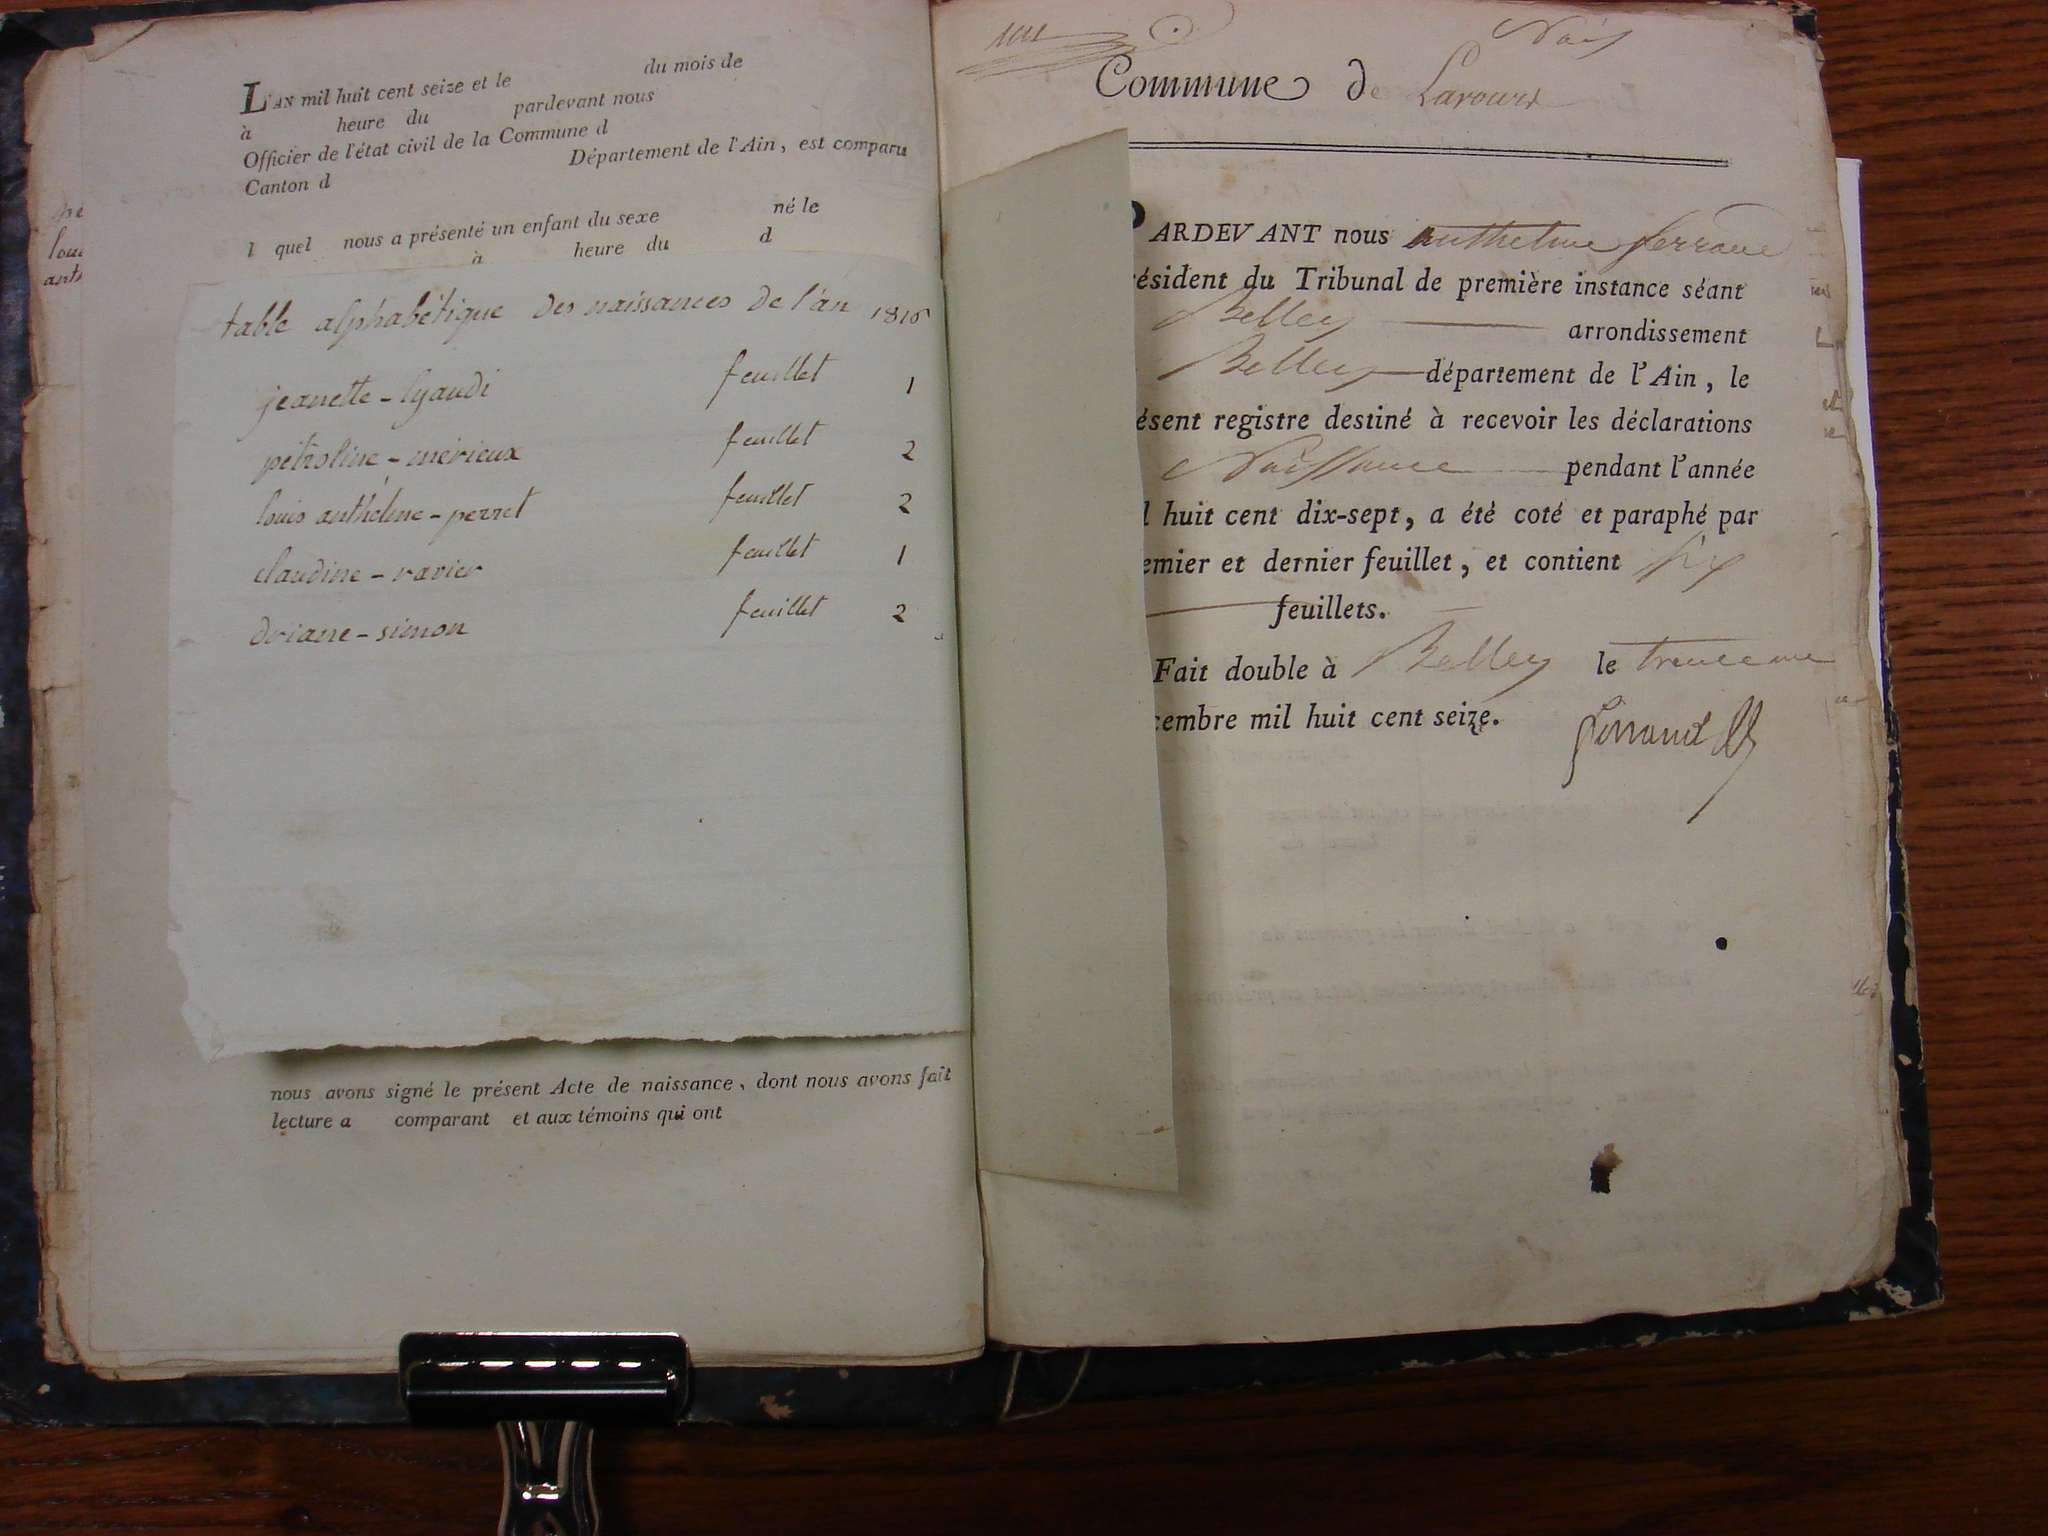 L'AN mil huit cent seize et le du mois de
à heure du pardevant nous
Officier de l'état civil de la Commune d
Canton d Département de l'Ain, est comparu
l quel nous a présenté un enfant du sexe né le
à heure du d
table alphabétique des naissances de l'an 1816
jeanette - lyaudi feuillet 1
pétroline - mérieux feuillet 2
louis anthelme - perret feuillet 2
claudine - ravier feuillet 1
driane - simon feuillet 2
nous avons signé le présent Acte de naissance, dont nous avons fait
lecture a comparant et aux témoins qui ont
Commune de Lavours
PARDEVANT nous anthelme ferrand
résident du Tribunal de première instance séant
Belley arrondissement
Belley département de l'Ain, le
ésent registre destiné à recevoir les déclarations
Naissance pendant l'année
l huit cent dix-sept, a été coté et paraphé par
emier et dernier feuillet, et contient six
feuillets.
Fait double à Belley le
cembre mil huit cent seize.
ferrand